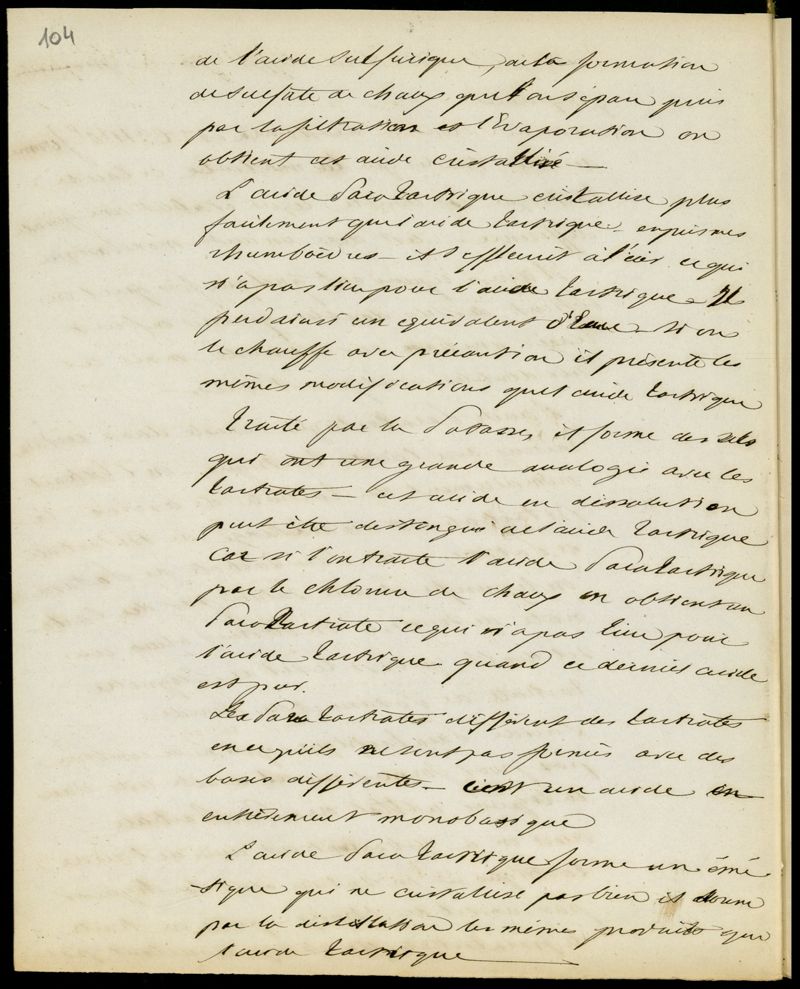 104
de l'acide sulfurique, de la formation
de sulfate de chaux que l'on sépare puis
par la filtration et l'Evaporation on
obtient cet acide cristallisé —
L'acide Paratartrique cristallise plus
facilement que l'acide tartrique — en prismes
rhomboïdres — il s'effleurit à l'air ce qui
n'a pas lieu pour l'acide tartrique. Il
perd ainsi un equivalent d'Eau — si on
le chauffe avec précaution il présente les
mêmes modifications que l'acide tartrique
Traité par la Potasse, il forme des sels
qui ont une grande analogie avec les
tartrates — cet acide en dissolution
peut être distingué de l'acide tartrique
Car si l'on traite l'acide Paratartrique
par le chlorure de chaux on obtient un
Paratartrate ce qui n'a pas lieu pour
l'acide tartrique quand ce dernier acide
est pur.
Les Paratartrates diffèrent des tartrates
en ce qu'ils ne sont pas formés avec des
bases différentes — c'est un acide
entièrement monobasique
L'acide Paratartrique forme un émé-
-tique qui ne cristallise pas bien il donne
par la distillation les mêmes produits que
l'acide tartrique —